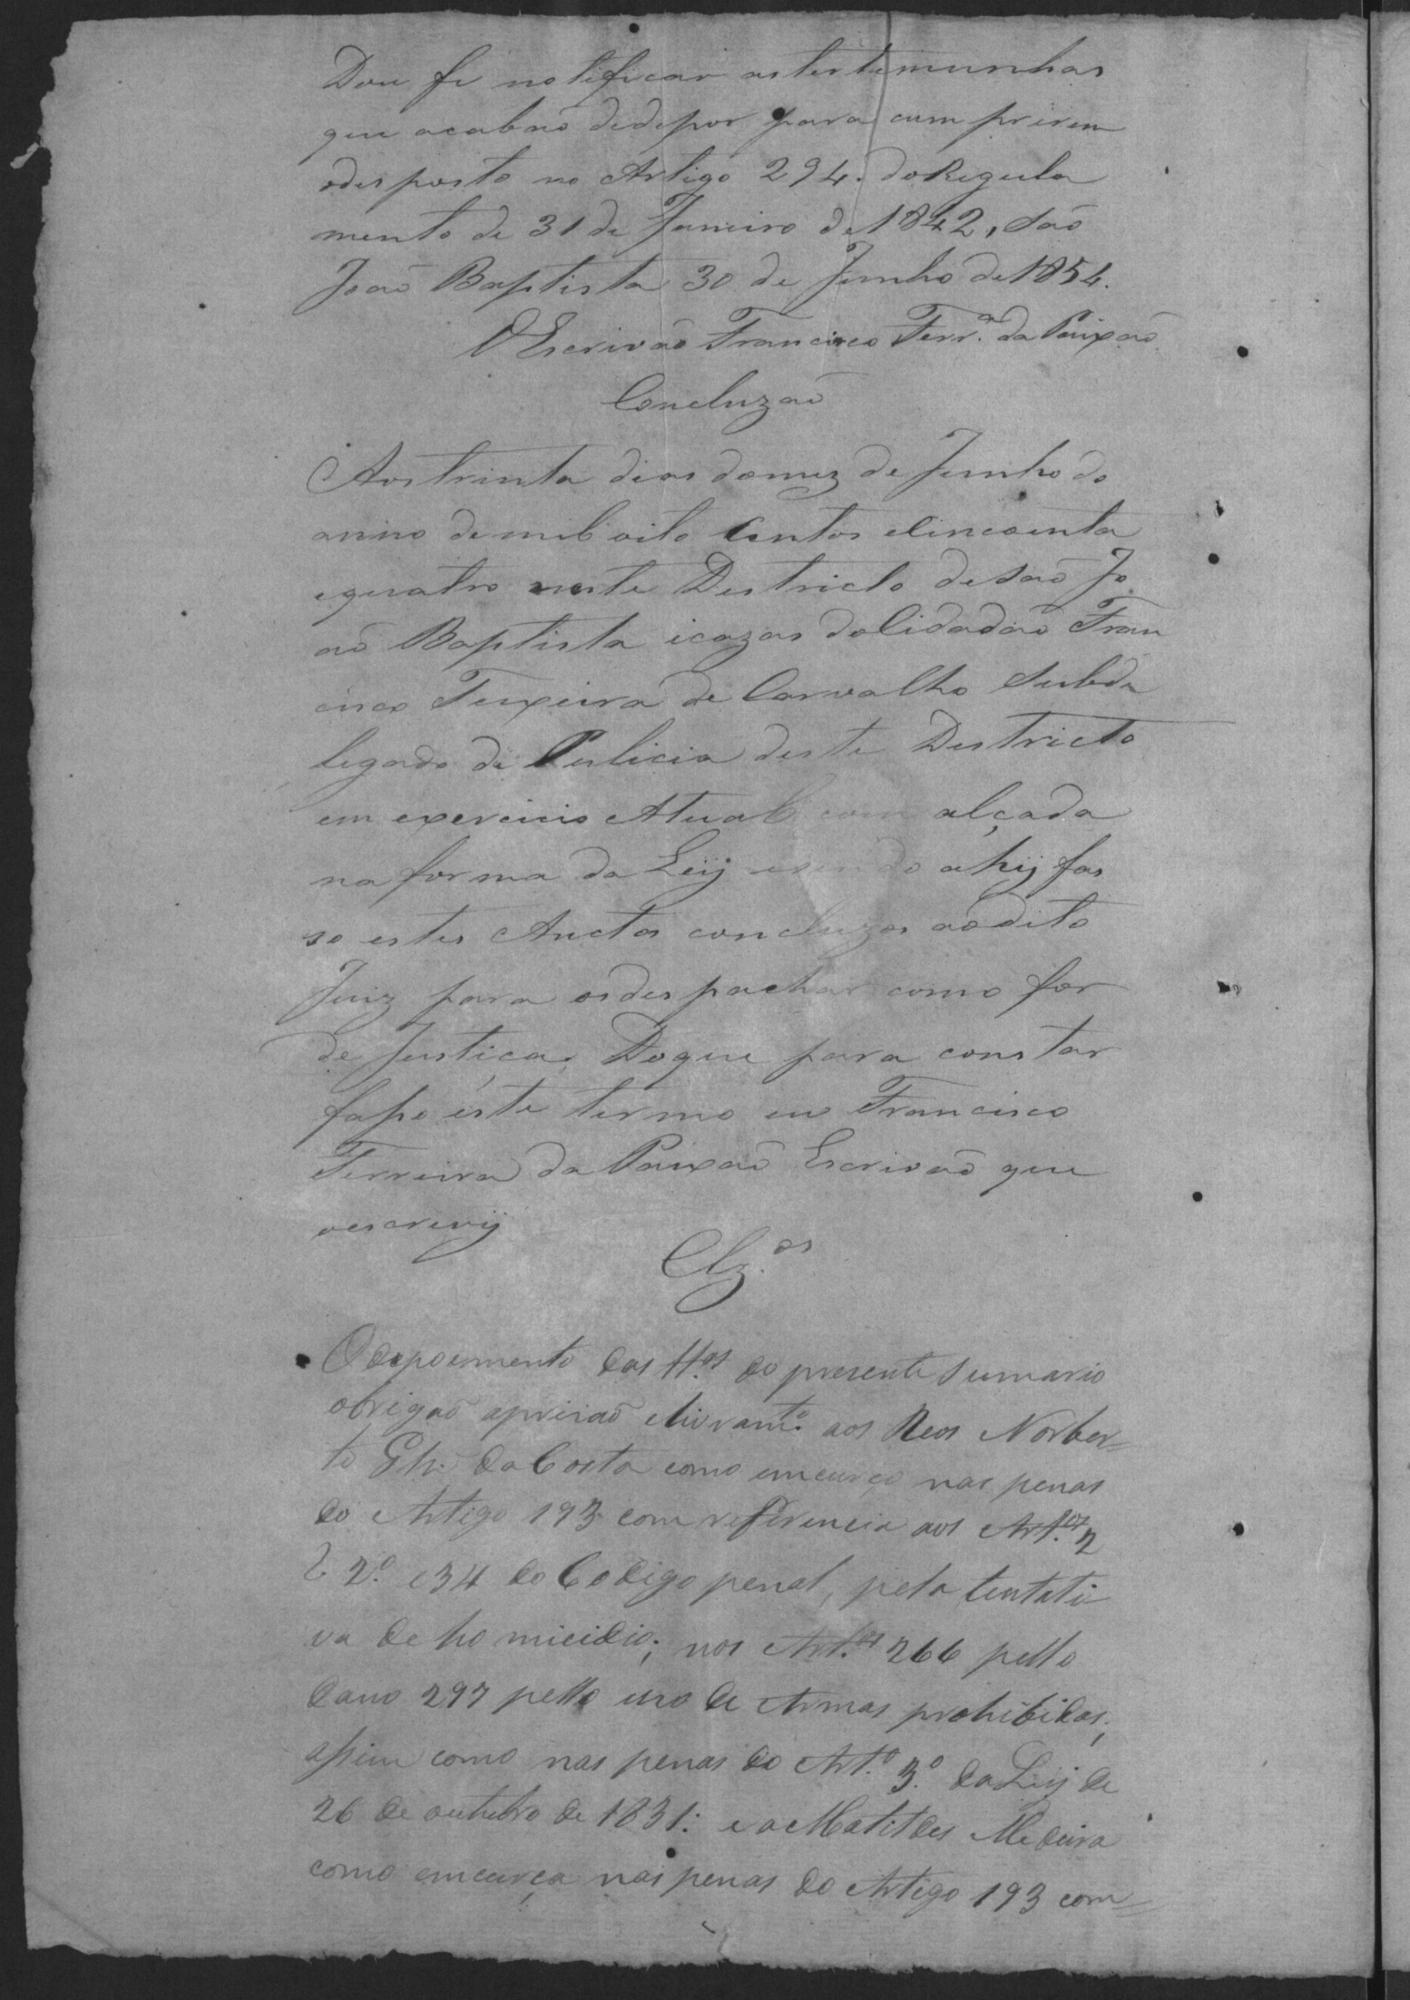 Dou fé notificar as testemunhas
que acabaõ dedepor para cumprirem
odesposto no Artigo 294. do Regula
mento de 31 de Janeiro de 1842, Saõ
Joaõ Baptista 30 de Junho de 1854.
O Escrivaõ Francisco Ferr.ª da Paixaõ
Concluzaõ
Aos trinta dias domez de Junho do
anno de mil oito Centos e Cincoenta
equatro neste Destricto de Saõ Jo
aõ Baptista icazas do Cidadaõ Fran
cisco Teixeira de Carvalho Subde
legado de Pulicia deste Destricto
em exercicio Atual com alçada
na forma da Leij esendo ahij fas
so estes Auctos concluzos aodito
Juiz para osdespachar como for
de Justiça, Doque para constar
fasso este termo eu Francisco
Ferreira da Paixaõ Escrivaõ que
oescrevij
Clz.os
O depoimento das tt.as do presente Sumario
obrigaõ aprisaõ elivram.to aos Reos Norber=
to Glz. da Costa como emcurço nas penas
do Artigo 193 com referencia aos Art.os 2
§ 2.º e 34 do Codigo penal, pela tentati
va de homicidio; nos Art.os 266 pello
dano 297 pello uso de Armas prohibidas;
assim como nas penas do Art.º 3.º da Leij de
26 de outubro de 1831: e a Matildes Medeira
como emcurça nas penas do Artigo 193 com=